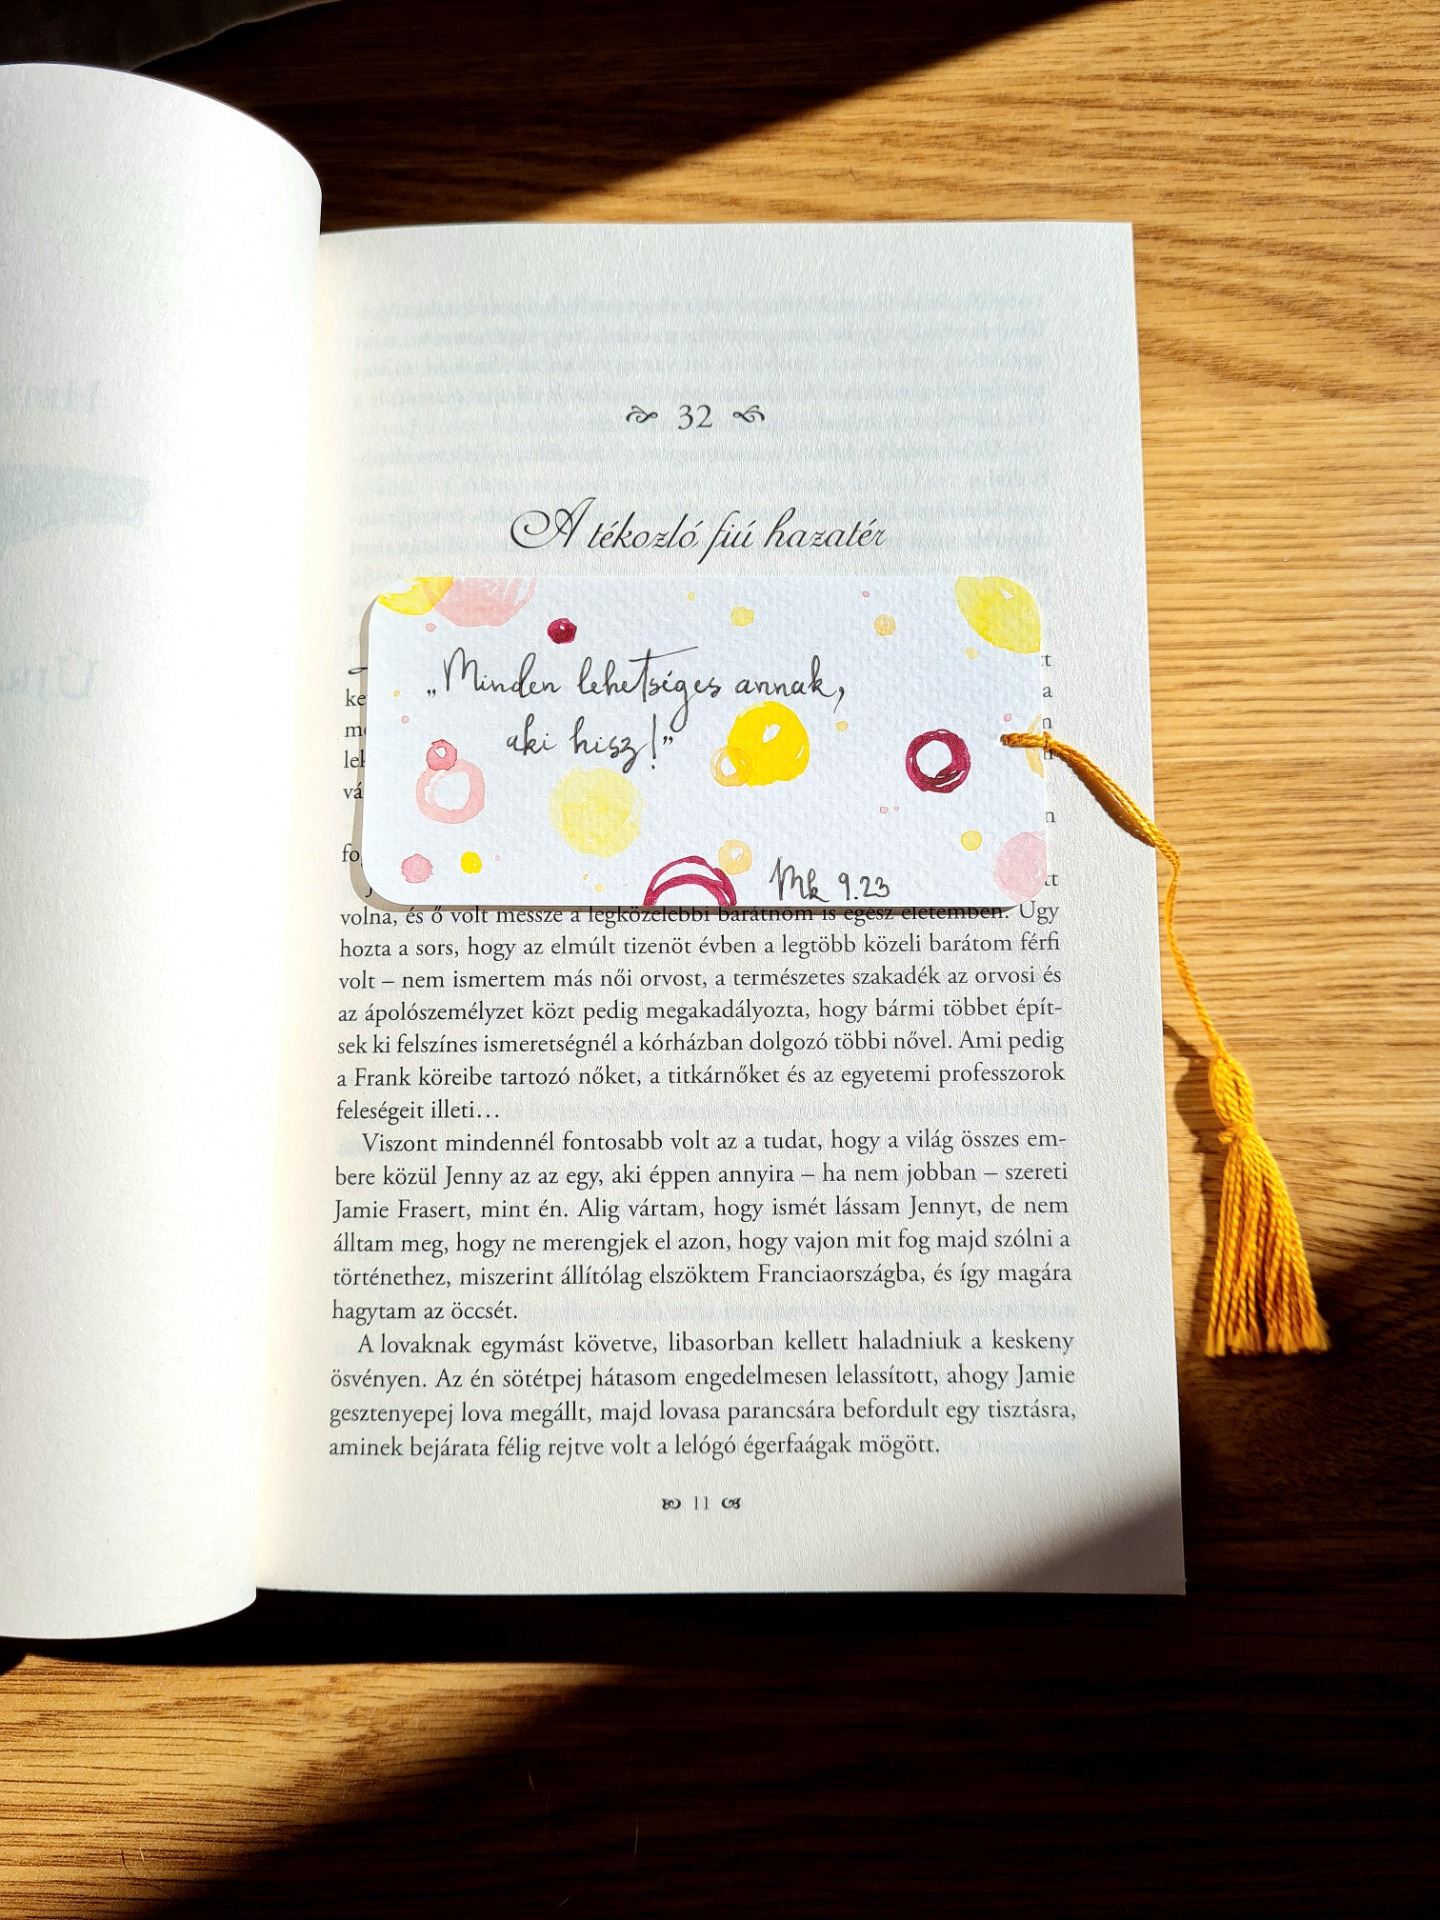 32
A tékozló fiú hazatér
„Minden lehetséges annak,
aki hisz!”
Mk 9.23
volna, és ő volt messze a legközelebbi barátnőm is egész életemben. Úgy
hozta a sors, hogy az elmúlt tizenöt évben a legtöbb közeli barátom férfi
volt – nem ismertem más női orvost, a természetes szakadék az orvosi és
az ápolószemélyzet közt pedig megakadályozta, hogy bármi többet épít-
sek ki felszínes ismeretségnél a kórházban dolgozó többi nővel. Ami pedig
a Frank köreibe tartozó nőket, a titkárnőket és az egyetemi professzorok
feleségeit illeti…
Viszont mindennél fontosabb volt az a tudat, hogy a világ összes em-
bere közül Jenny az az egy, aki éppen annyira – ha nem jobban – szereti
Jamie Frasert, mint én. Alig vártam, hogy ismét lássam Jennyt, de nem
álltam meg, hogy ne merengjek el azon, hogy vajon mit fog majd szólni a
történethez, miszerint állítólag elszöktem Franciaországba, és így magára
hagytam az öccsét.
A lovaknak egymást követve, libasorban kellett haladniuk a keskeny
ösvényen. Az én sötétpej hátasom engedelmesen lelassított, ahogy Jamie
gesztenyepej lova megállt, majd lovasa parancsára befordult egy tisztásra,
aminek bejárata félig rejtve volt a lelógó égerfaágak mögött.
11